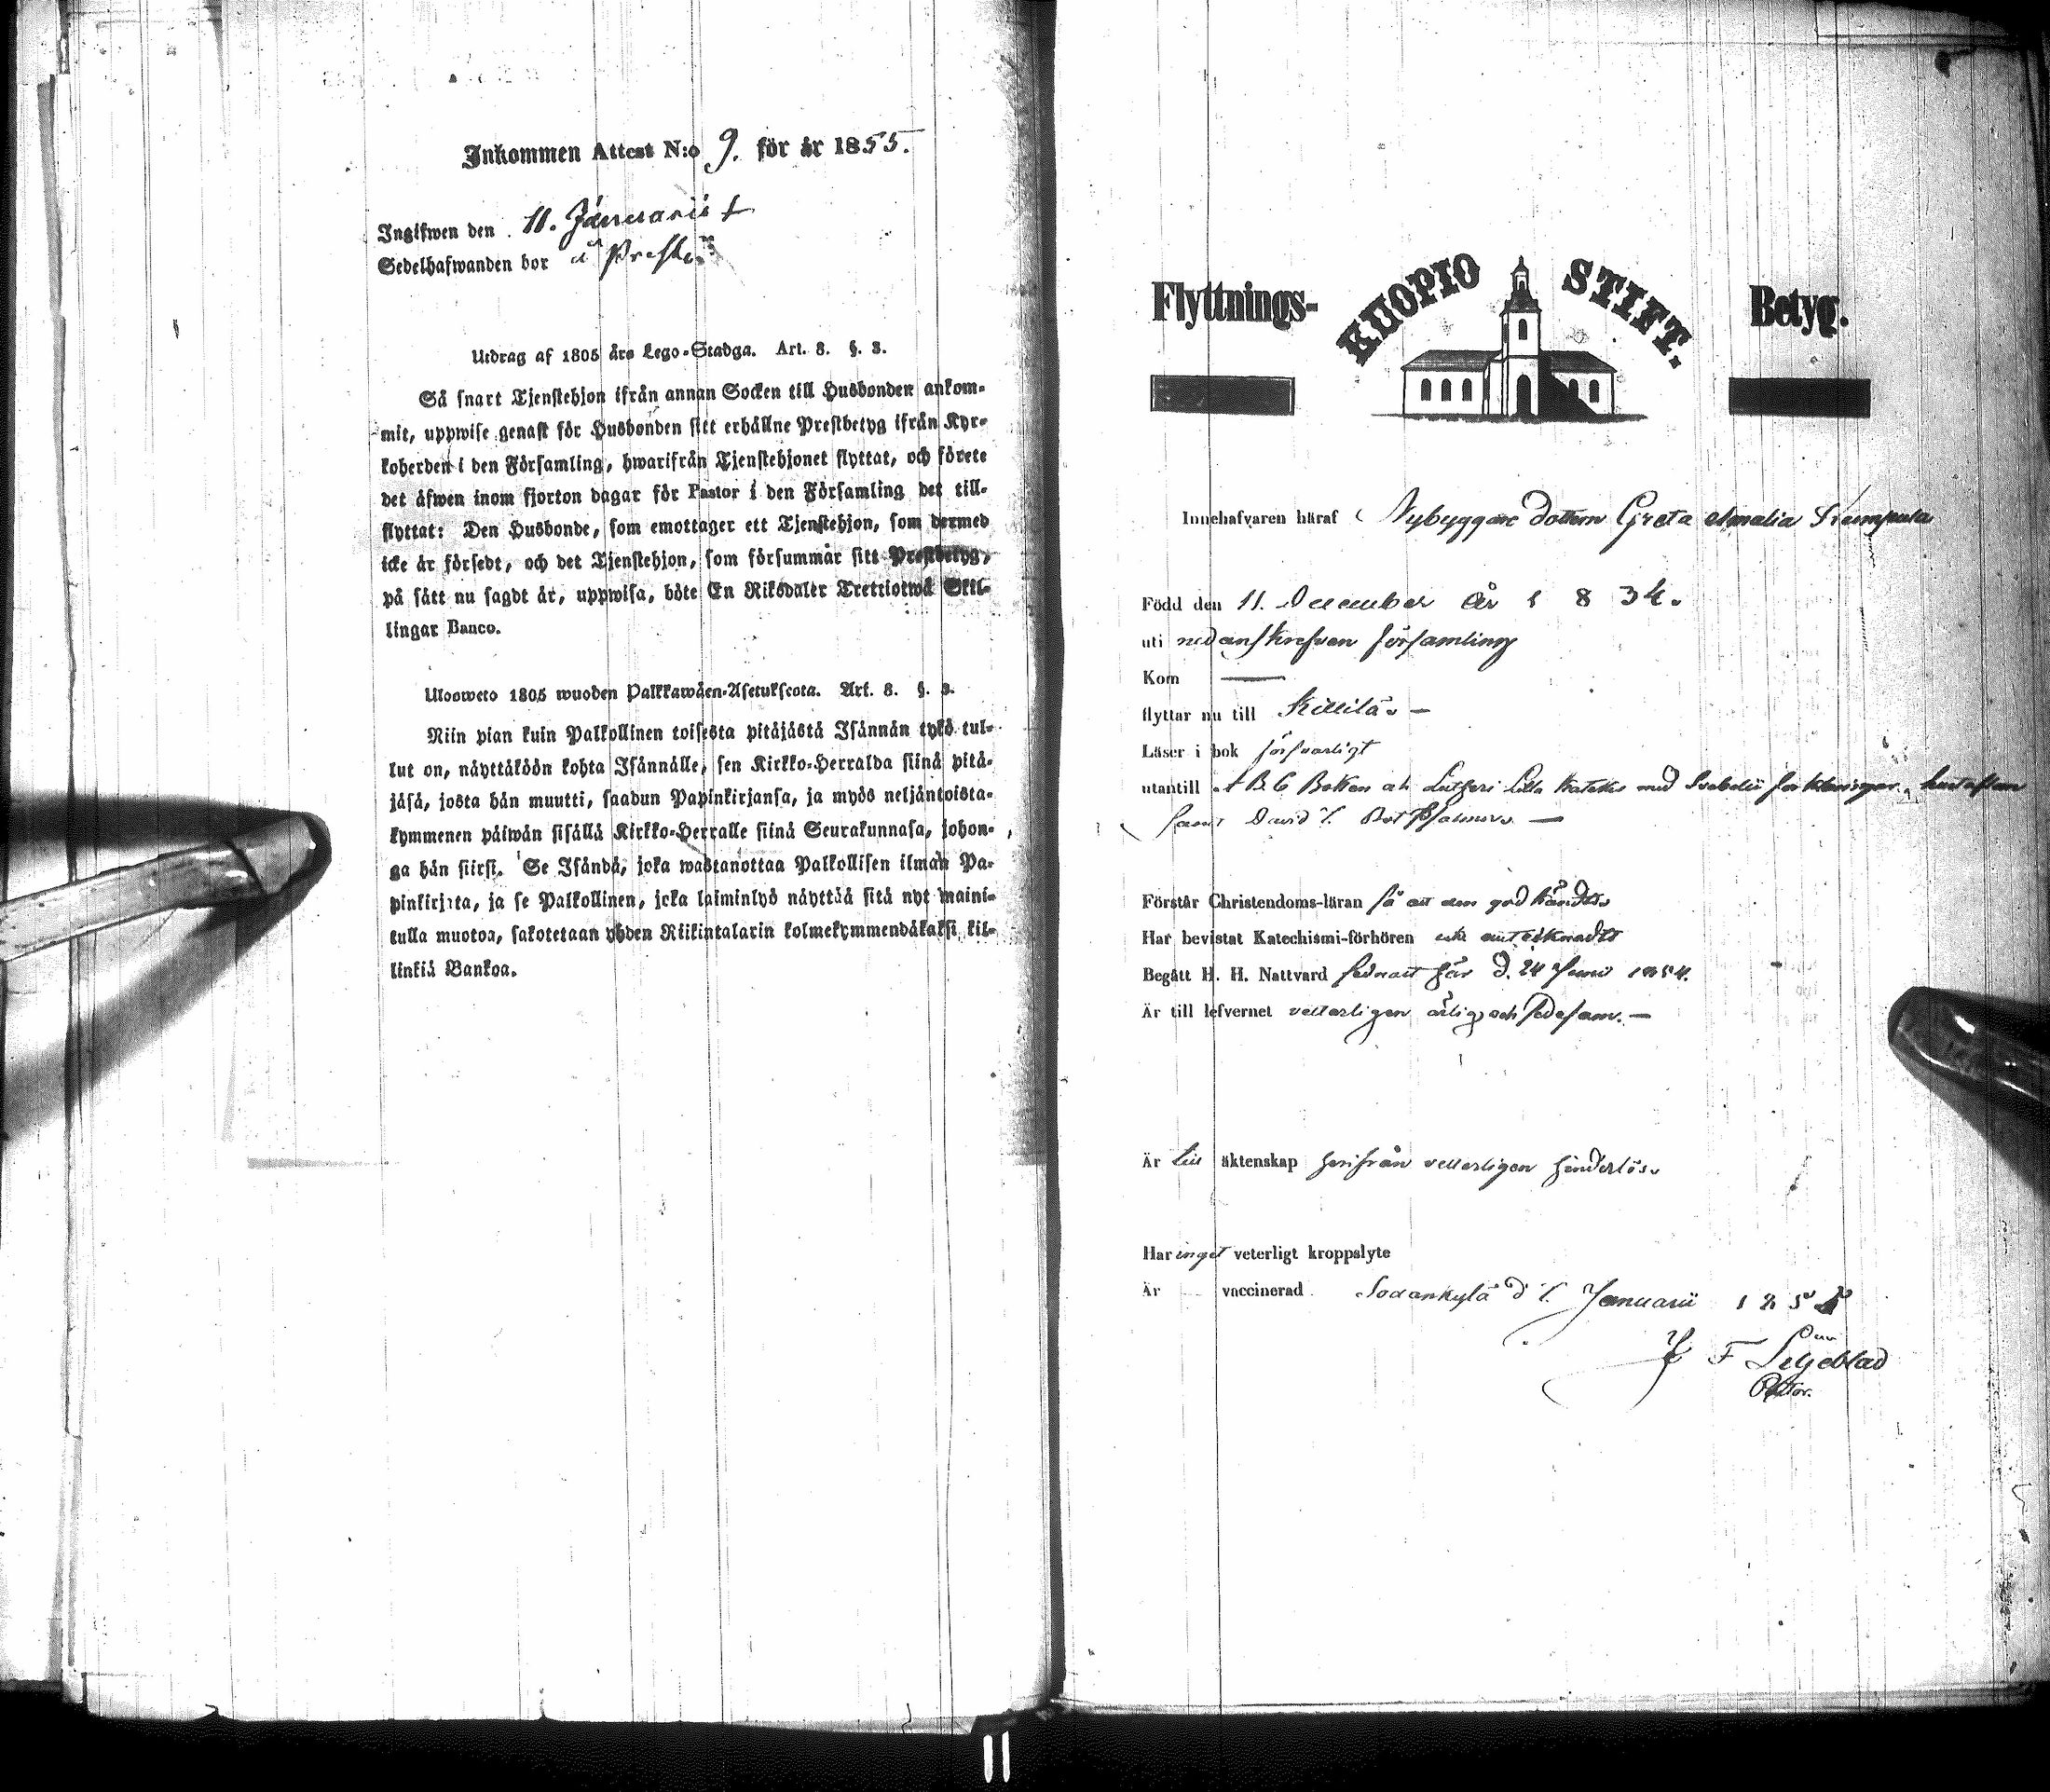 Inkommen Attest N:o 9. för år 1855.
Ingifwen den 11. Januarii
Sedelhafwanden bor
Utdrag af 1805 års Lego-Stadga. Art. 8. §. 3.
Så snart Tjenstehjon ifrån annan Socken till Husbonden ankom-
mit, uppwise genast för Husbonden sitt erhållne Prestbetyg ifrån Kyr-
koherden i den Församling, hwarifrån Tjenstehjonet flyttat, och förete
det äfwen inom fjorton dagar för Pastor i den Församling det till-
flyttat: Den Husbonde, som emottager ett Tjenstehjon, som dermed
icke är försedt, och det Tjenstehjon, som försummar sitt Prestbetyg,
på sätt nu sagdt är, uppwisa, böte En Riksdaler Trettiotwå Skil-
lingar Banco.
Ulosweto 1805 wuoden Palkkawäen-Asetuksesta. Art. 8. §. 3.
Niin pian kuin Palkollinen toisesta pitäjästä Isännän tykö tul-
lut on, näyttäköön kohta Isännälle, sen Kirkko-Herralda siinä pitä-
jäsä, josta hän muutti, saadun Papinkirjansa, ja myös neljäntoista-
kymmenen päiwän sisällä Kirkko-Herralle siinä Seurakunnasa, johon-
ga hän siirsi. Se Isändä, joka wastanottaa Palkollisen ilman Pa-
pinkirjata, ja se Palkollinen, joka laiminlyö näyttää sitä nyt maini-
tulla muotoa, sakotetaan yhden Riikintalarin kolmekymmendäkaksi kil-
linkiä Bankoa.
Flyttnings- KUOPIO STIFT. Betyg.
Innehafvaren häraf Nybyggare dottern Greta Amalia
Född den 11. December År 1834.
uti nedanskrefven församling
Kom —
flyttar nu till Kittilä. —
Läser i bok försvarligt
utantill A B C Boken och Lutheri Lilla Kateches med Svebelii förklaringar, hustaflan
samt David's Bot Psalmer. —
Förstår Christendoms-läran så att den god kändts.
Har bevistat Katechismi-förhören
Begått H. H. Nattvard sednast här d. 24 Junii 1854.
Är till lefvernet vetterligen ärlig och sedesam. —
Är till äktenskap härifrån vetterligen hinderlös.
Har inget veterligt kroppslyte
Är vaccinerad Sodankylä d Januarii 1855
F Liljeblad
Pastor.
11